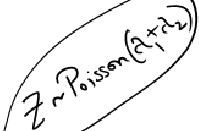 Z ~ Poisson(λ₁+λ₂)